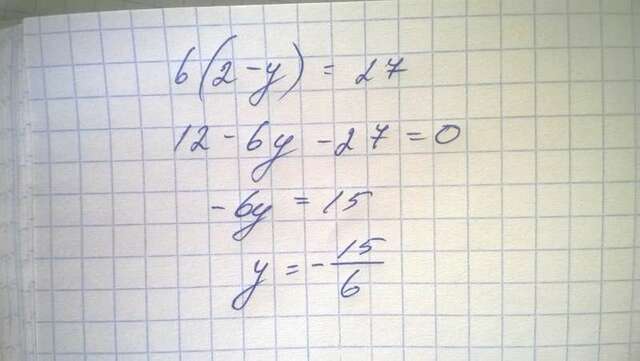 6(2-y) = 27
12 - 6y - 27 = 0
-6y = 15
y = -15/6